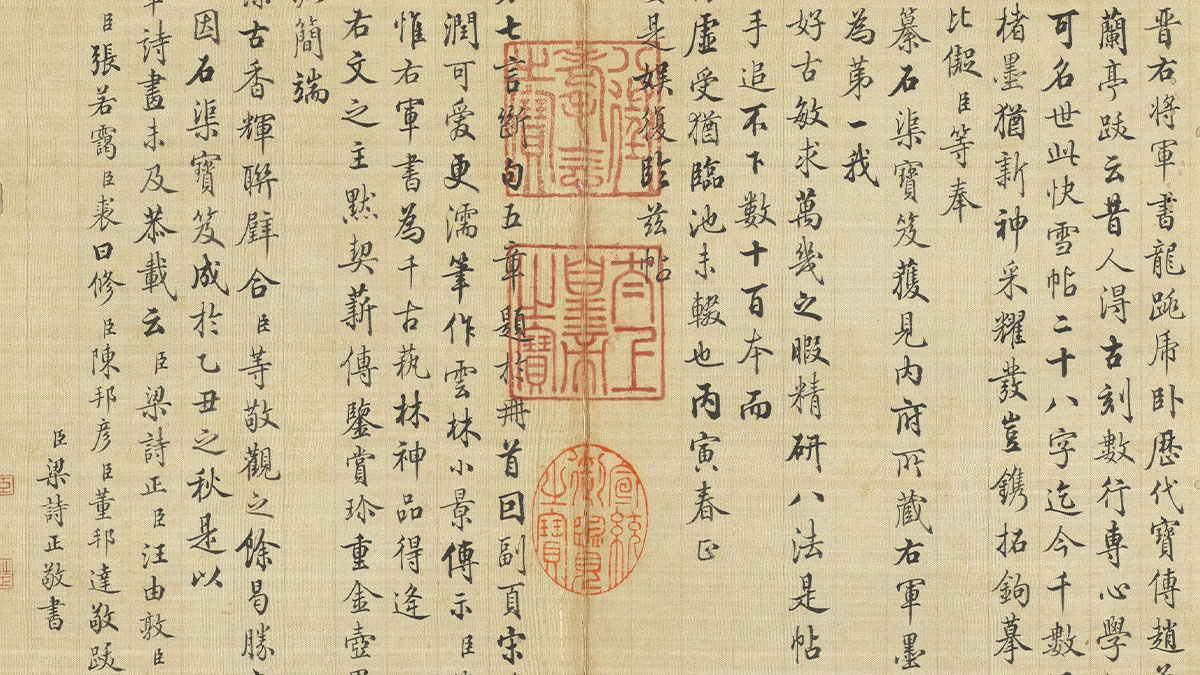 晉右將軍書龍跳虎卧歷代寶傳趙
蘭亭跋云昔人得古刻數行專心學
可名世此快雪帖二十八字迄今千數
楮墨猶新神采耀發豈鐫拓鉤摹
比儗臣等奉
纂石渠寶笈獲見内府所蔵右軍墨
為第一我
好古敏求萬幾之暇精研八法是帖
手追不下數十百本而
虛受猶臨池未輟也丙寅春正
是娛復臨茲帖
七言斷句五章題於冊首回副頁宋
潤可愛更濡筆作雲林小景傳示臣
惟右軍書為千古蓺林神品得逢
右文之主默契薪傳鑒賞珍重金壺
簡端
古香輝聯璧合臣等敬觀之餘曷勝
因石渠寶笈成於乙丑之秋是以
詩畫未及恭載云臣梁詩正臣汪由敦臣
臣張若靄臣裘曰修臣陳邦彥臣董邦達敬跋
臣梁詩正敬書
八徵耄念之寶
太上皇帝之寶
宣統御覽之寶